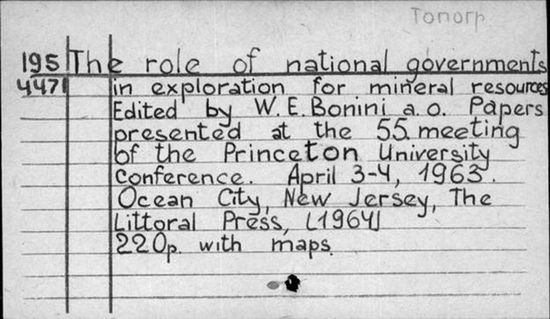 Tonorp
195 The role of national governments
4471 in exploration for mineral resources
Edited by W.E. Bonini a.o. Papers
presented at the 55 meeting
of the Princeton University
Conference. April 3-4, 1963.
Ocean City, New Jersey, The
Littoral Press, [1964]
220p. with maps.